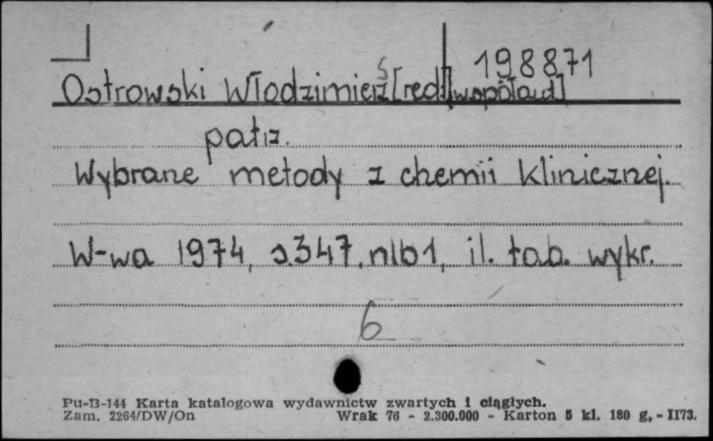 198871
Ostrowski Włodzimierz [red.] [współaut]
patrz.
Wybrane metody z chemii klinicznej.
W-wa 1974, s.347, nlb1, il. tab. wykr.
6
Pu-B-144 Karta katalogowa wydawnictw zwartych i ciągłych.
Zam. 2264/DW/On Wrak 76 - 2.300.000 - Karton 5 kl. 180 g, - II73.